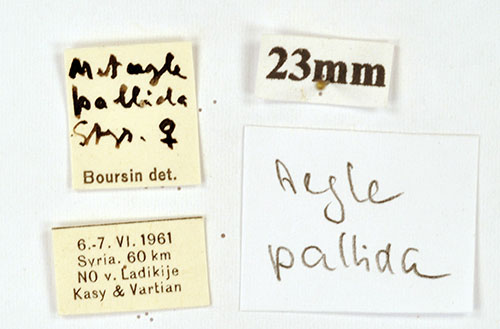 Metaegle
pallida
Stgr. ♀
Boursin det.
23mm
6.-7. VI. 1961
Syria. 60 km
NO v. Ladikije
Kasy & Vartian
Aegle
pallida